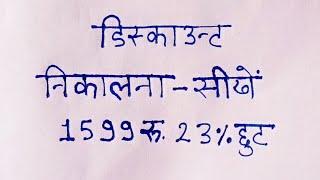 डिस्काउन्ट
निकालना - सीखें
1599 रू. 23% छुट